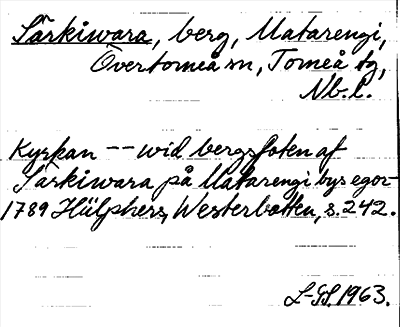 Särkiwara, berg, Matarengi,
Övertorneå sn, Torneå tg,
Nb. l.
Kyrkan -- wid bergsfoten af
Särkiwara på Matarengi bys egor-
1789 Hülphers, Westerbotten, s. 242.
L-GS. 1963.